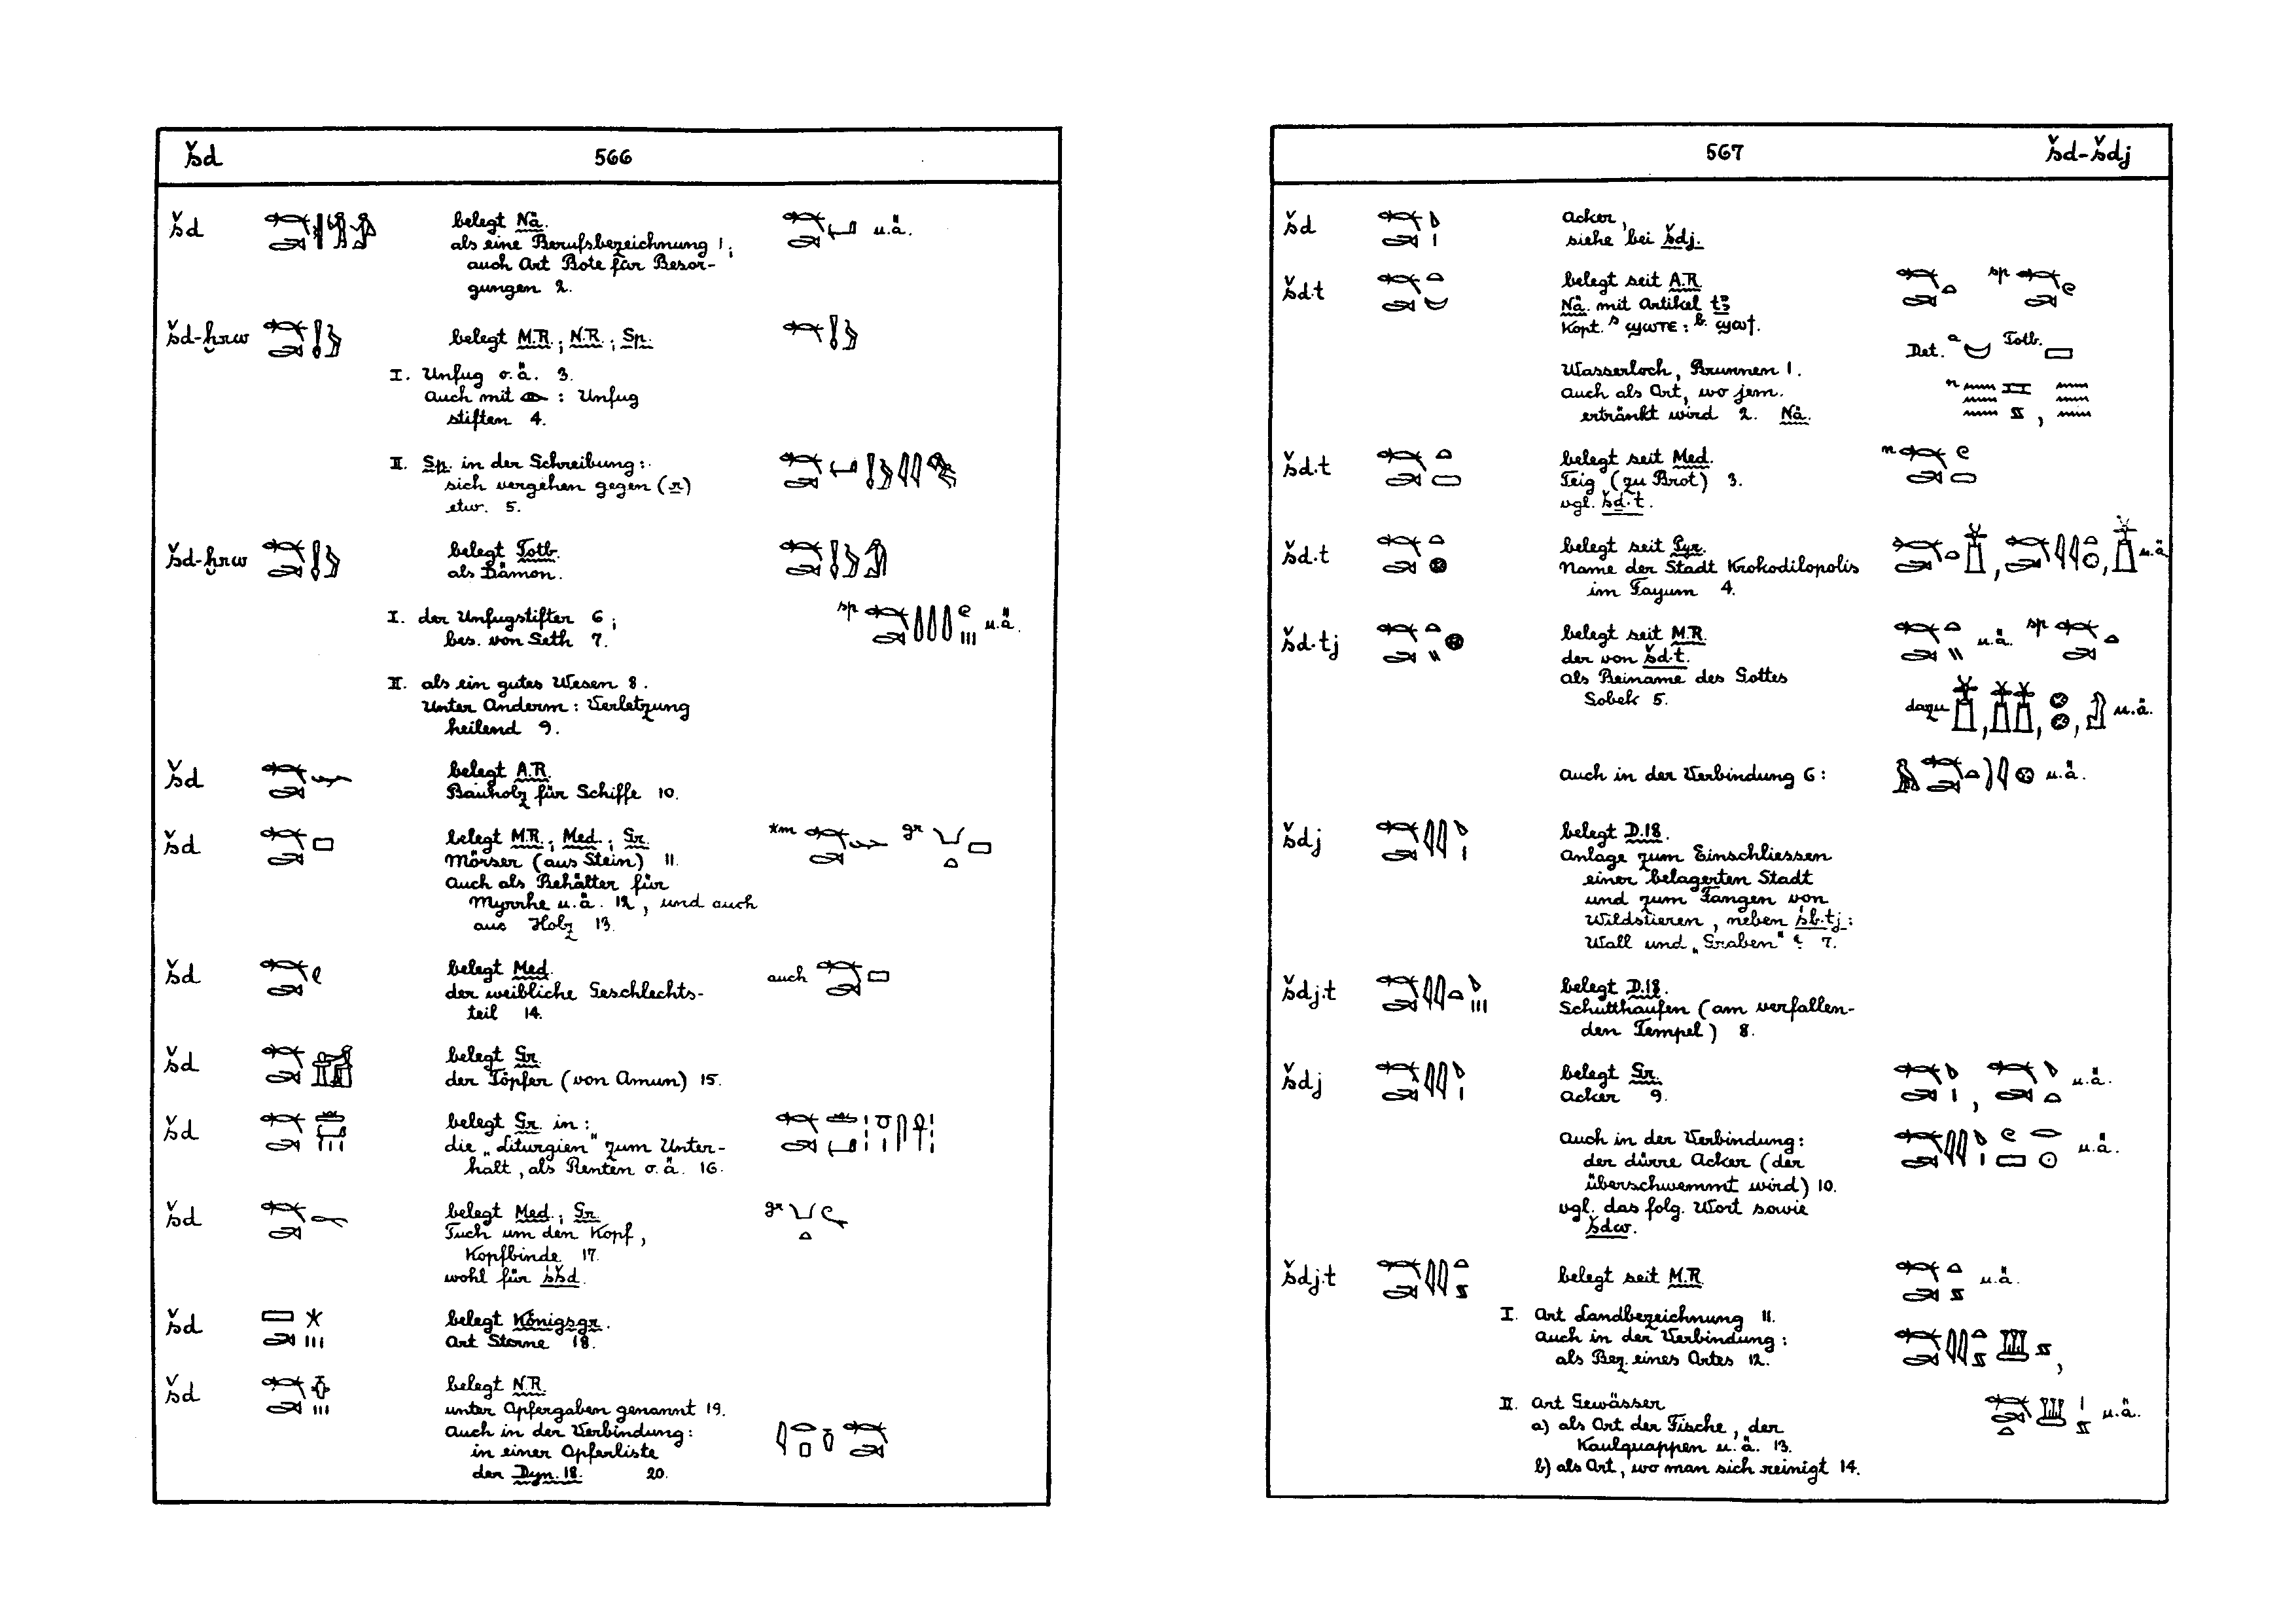 šd 566
šd belegt Nä. u.ä.
als eine Berufsbezeichnung 1;
auch Art Bote für Besor-
gungen 2.
šd-ḫrw belegt M.R.; N.R.; Sp.
I. Unfug o.ä. 3.
Auch mit : Unfug
stiften 4.
II. Sp. in der Schreibung:
sich vergehen gegen (r)
etw. 5.
šd-ḫrw belegt Totb.
als Dämon.
I. der Unfugstifter 6; sp u.ä.
bes. von Seth 7.
II. als ein gutes Wesen 8.
Unter Anderm: Verletzung
heilend 9.
šd belegt A.R.
Bauholz für Schiffe 10.
šd belegt M.R.; Med.; Gr. *m gr
Mörser (aus Stein) 11.
Auch als Behälter für
Myrrhe u.ä. 12, und auch
aus Holz 13.
šd belegt Med. auch
der weibliche Geschlechts-
teil 14.
šd belegt Gr.
der Töpfer (von Amun) 15.
šd belegt Gr. in:
die „Liturgien" zum Unter-
halt, als Renten o.ä. 16.
šd belegt Med.; Gr. gr
Tuch um den Kopf,
Kopfbinde 17.
wohl für sšd.
šd belegt Königsgr.
Art Sterne 18.
šd belegt N.R.
unter Opfergaben genannt 19.
Auch in der Verbindung:
in einer Opferliste
der Dyn. 18. 20.
567 šd-šdj
šd Acker,
siehe bei šdj.
šd.t belegt seit A.R. sp
Nä. mit Artikel tꜣ
Kopt. s ϣⲱⲧⲉ : b. ϣⲱϯ.
Det. a Totb.
Wasserloch, Brunnen 1.
auch als Ort, wo jem. n
ertränkt wird 2. Nä. ,
šd.t belegt seit Med. n
Teig (zu Brot) 3.
vgl. šd.t.
šd.t belegt seit Pyr. , , u.ä.
Name der Stadt Krokodilopolis
im Fayum 4.
šd.tj belegt seit M.R. u.ä. sp
der von šd.t.
als Beiname des Gottes
Sobek 5. dazu , , , u.ä.
Auch in der Verbindung 6: u.ä.
šdj belegt D.18.
Anlage zum Einschliessen
einer belagerten Stadt
und zum Fangen von
Wildstieren, neben sb.tj:
Wall und „Graben" ? 7.
šdj.t belegt D.18.
Schutthaufen (am verfallen-
den Tempel) 8.
šdj belegt Gr. , u.ä.
Acker 9.
Auch in der Verbindung: u.ä.
der dürre Acker (der
überschwemmt wird) 10.
vgl. das folg. Wort sowie
šdw.
šdj.t belegt seit M.R. u.ä.
I. Art Landbezeichnung 11.
Auch in der Verbindung:
als Bez. eines Ortes 12. ,
II. Art Gewässer u.ä.
a) als Ort der Fische, der
Kaulquappen u.ä. 13.
b) als Ort, wo man sich reinigt 14.